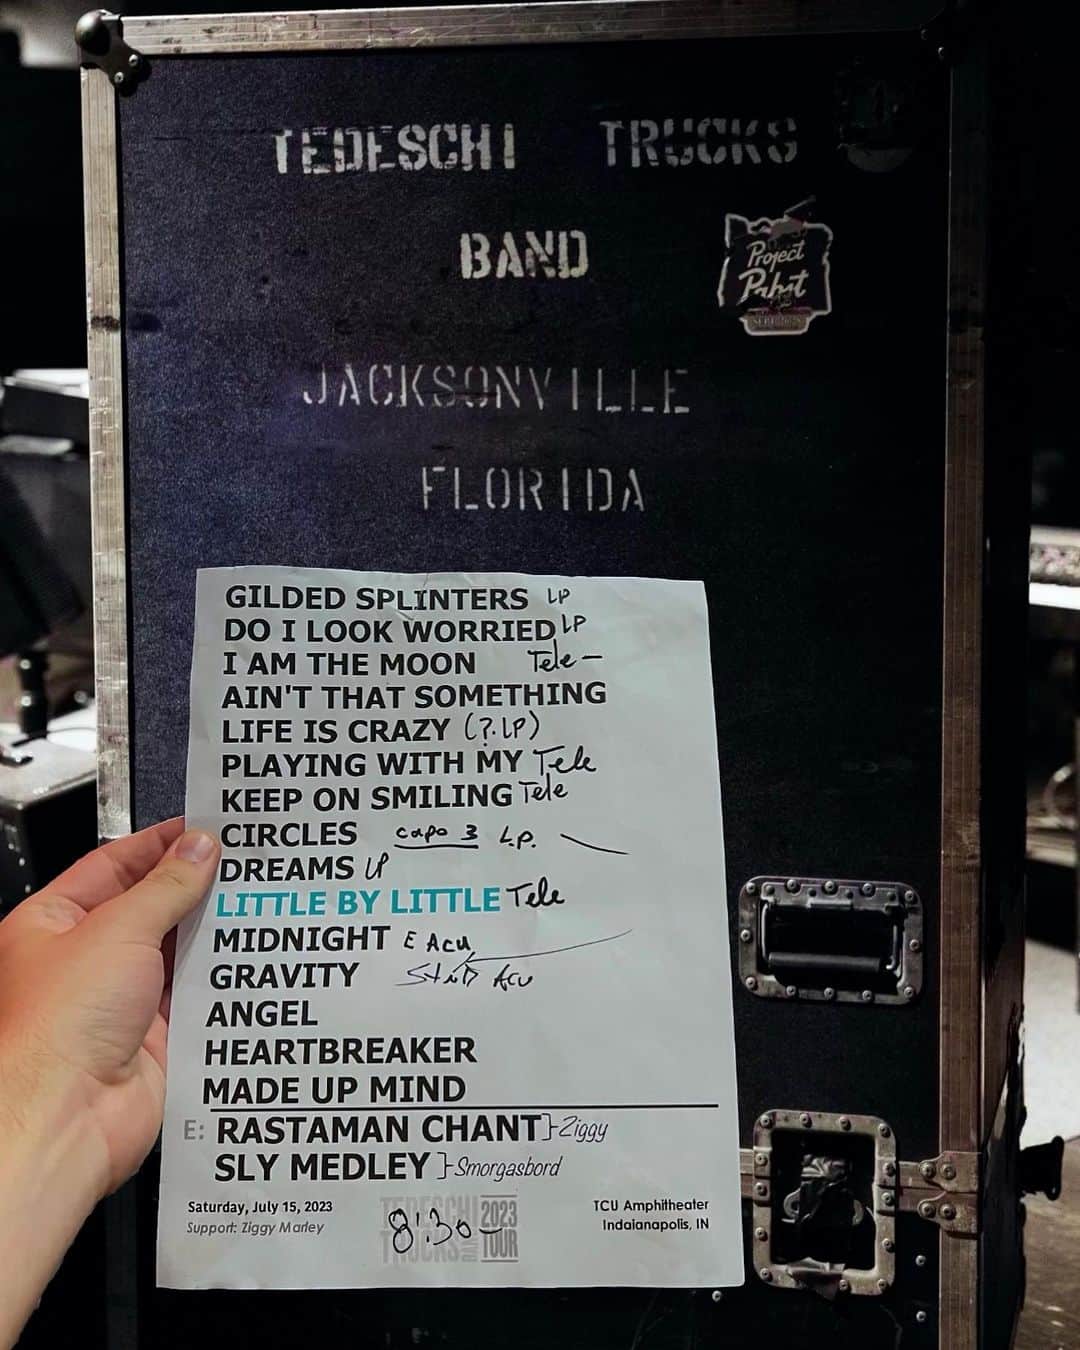 TEDESCHI TRUCKS
BAND
Project
Pabst
JACKSONVILLE
FLORIDA
GILDED SPLINTERS LP
DO I LOOK WORRIED LP
I AM THE MOON Tele —
AIN'T THAT SOMETHING
LIFE IS CRAZY (?.LP)
PLAYING WITH MY Tele
KEEP ON SMILING Tele
CIRCLES capo 3 L.P.
DREAMS LP
LITTLE BY LITTLE Tele
MIDNIGHT E ACU
GRAVITY ACU
ANGEL
HEARTBREAKER
MADE UP MIND
E: RASTAMAN CHANT }-Ziggy
SLY MEDLEY }-Smorgasbord
Saturday, July 15, 2023
Support: Ziggy Marley
TEDESCHI TRUCKS BAND 2023 TOUR
8:30
TCU Amphitheater
Indaianapolis, IN